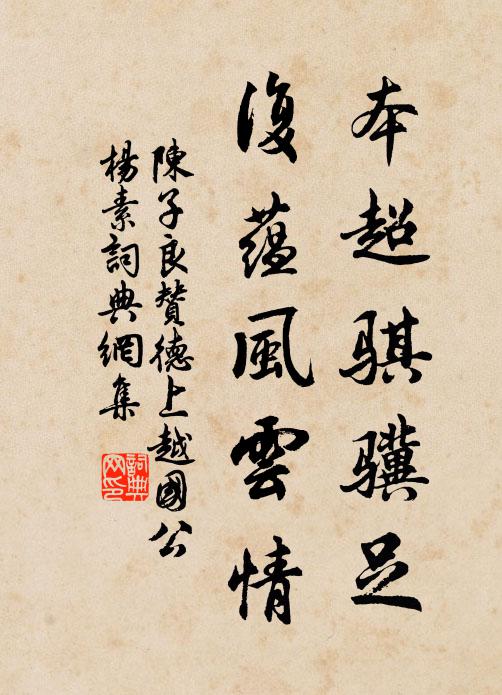 本超骐骥足
復蕴風雲情
陳子良贊德上越國公
楊素詞典網集
詞典网印